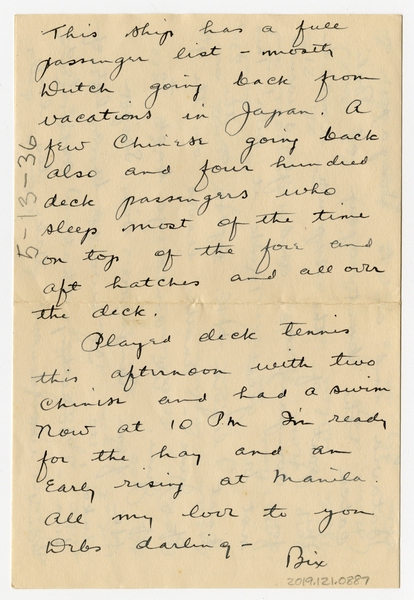 This ship has a full
passenger list - mostly
Dutch going back from
vacations in Japan. A
few Chinese going back
also and four hundred
deck passengers who
sleep most of the time
on top of the fore and
aft hatches and all over
the deck.
Played deck tennis
this afternoon with two
Chinese and had a swim
Now at 10 P.M I'm ready
for the hay and an
Early rising at Manila.
All my love to you
Debs darling -
Bix
2019.121.0887
5-13-36